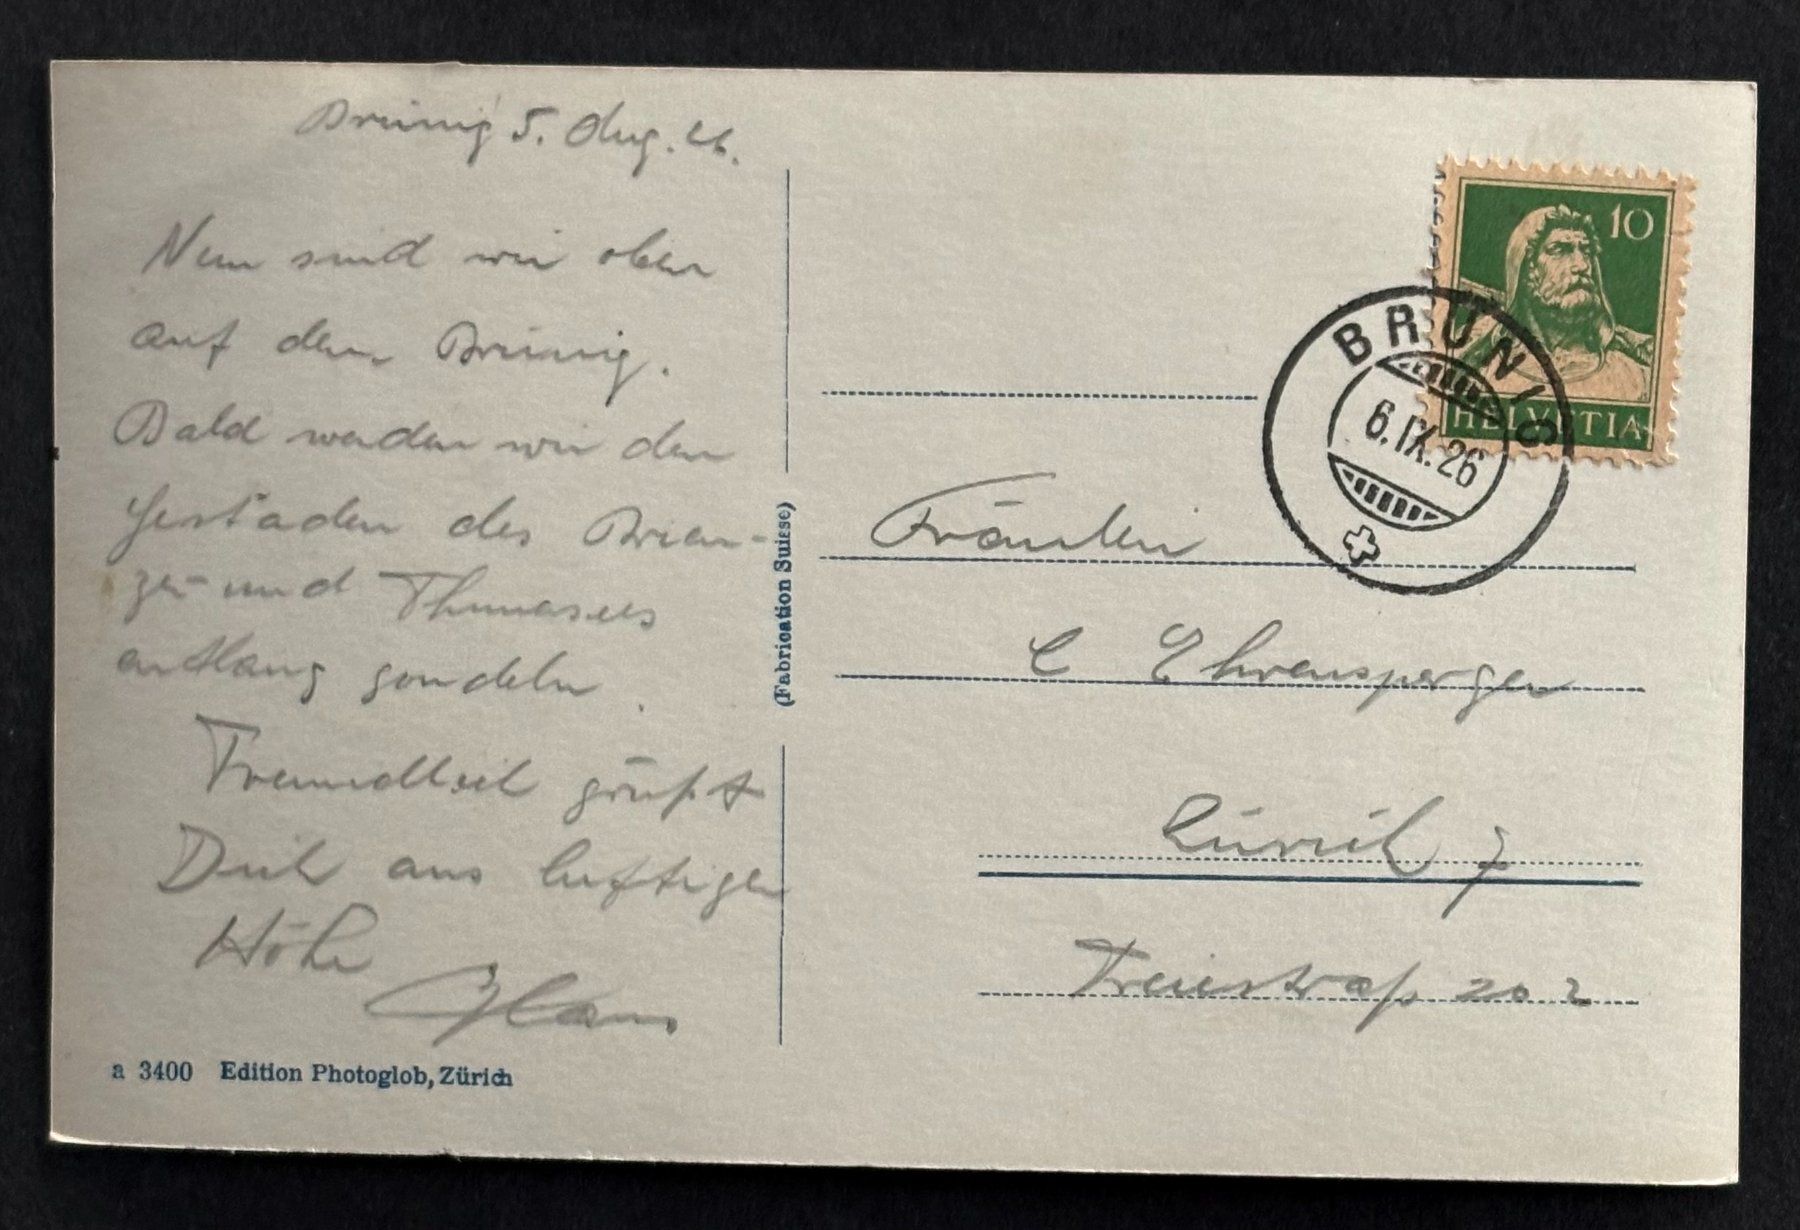 Brünig 5. Aug. 26.
Nun sind wir oben
auf dem Brünig.
Bald werden wir den
Gestaden des Brien-
zer- und Thunersees
entlang gondeln.
Freundlich grüßt
Dich aus luftiger
Höhe
Hans
a 3400 Edition Photoglob, Zürich
(Fabrication Suisse)
10
HELVETIA
BRÜNIG
6.IX.26
Fräulein
C Ehrensperger
Zürich 7
Freiestraß 202